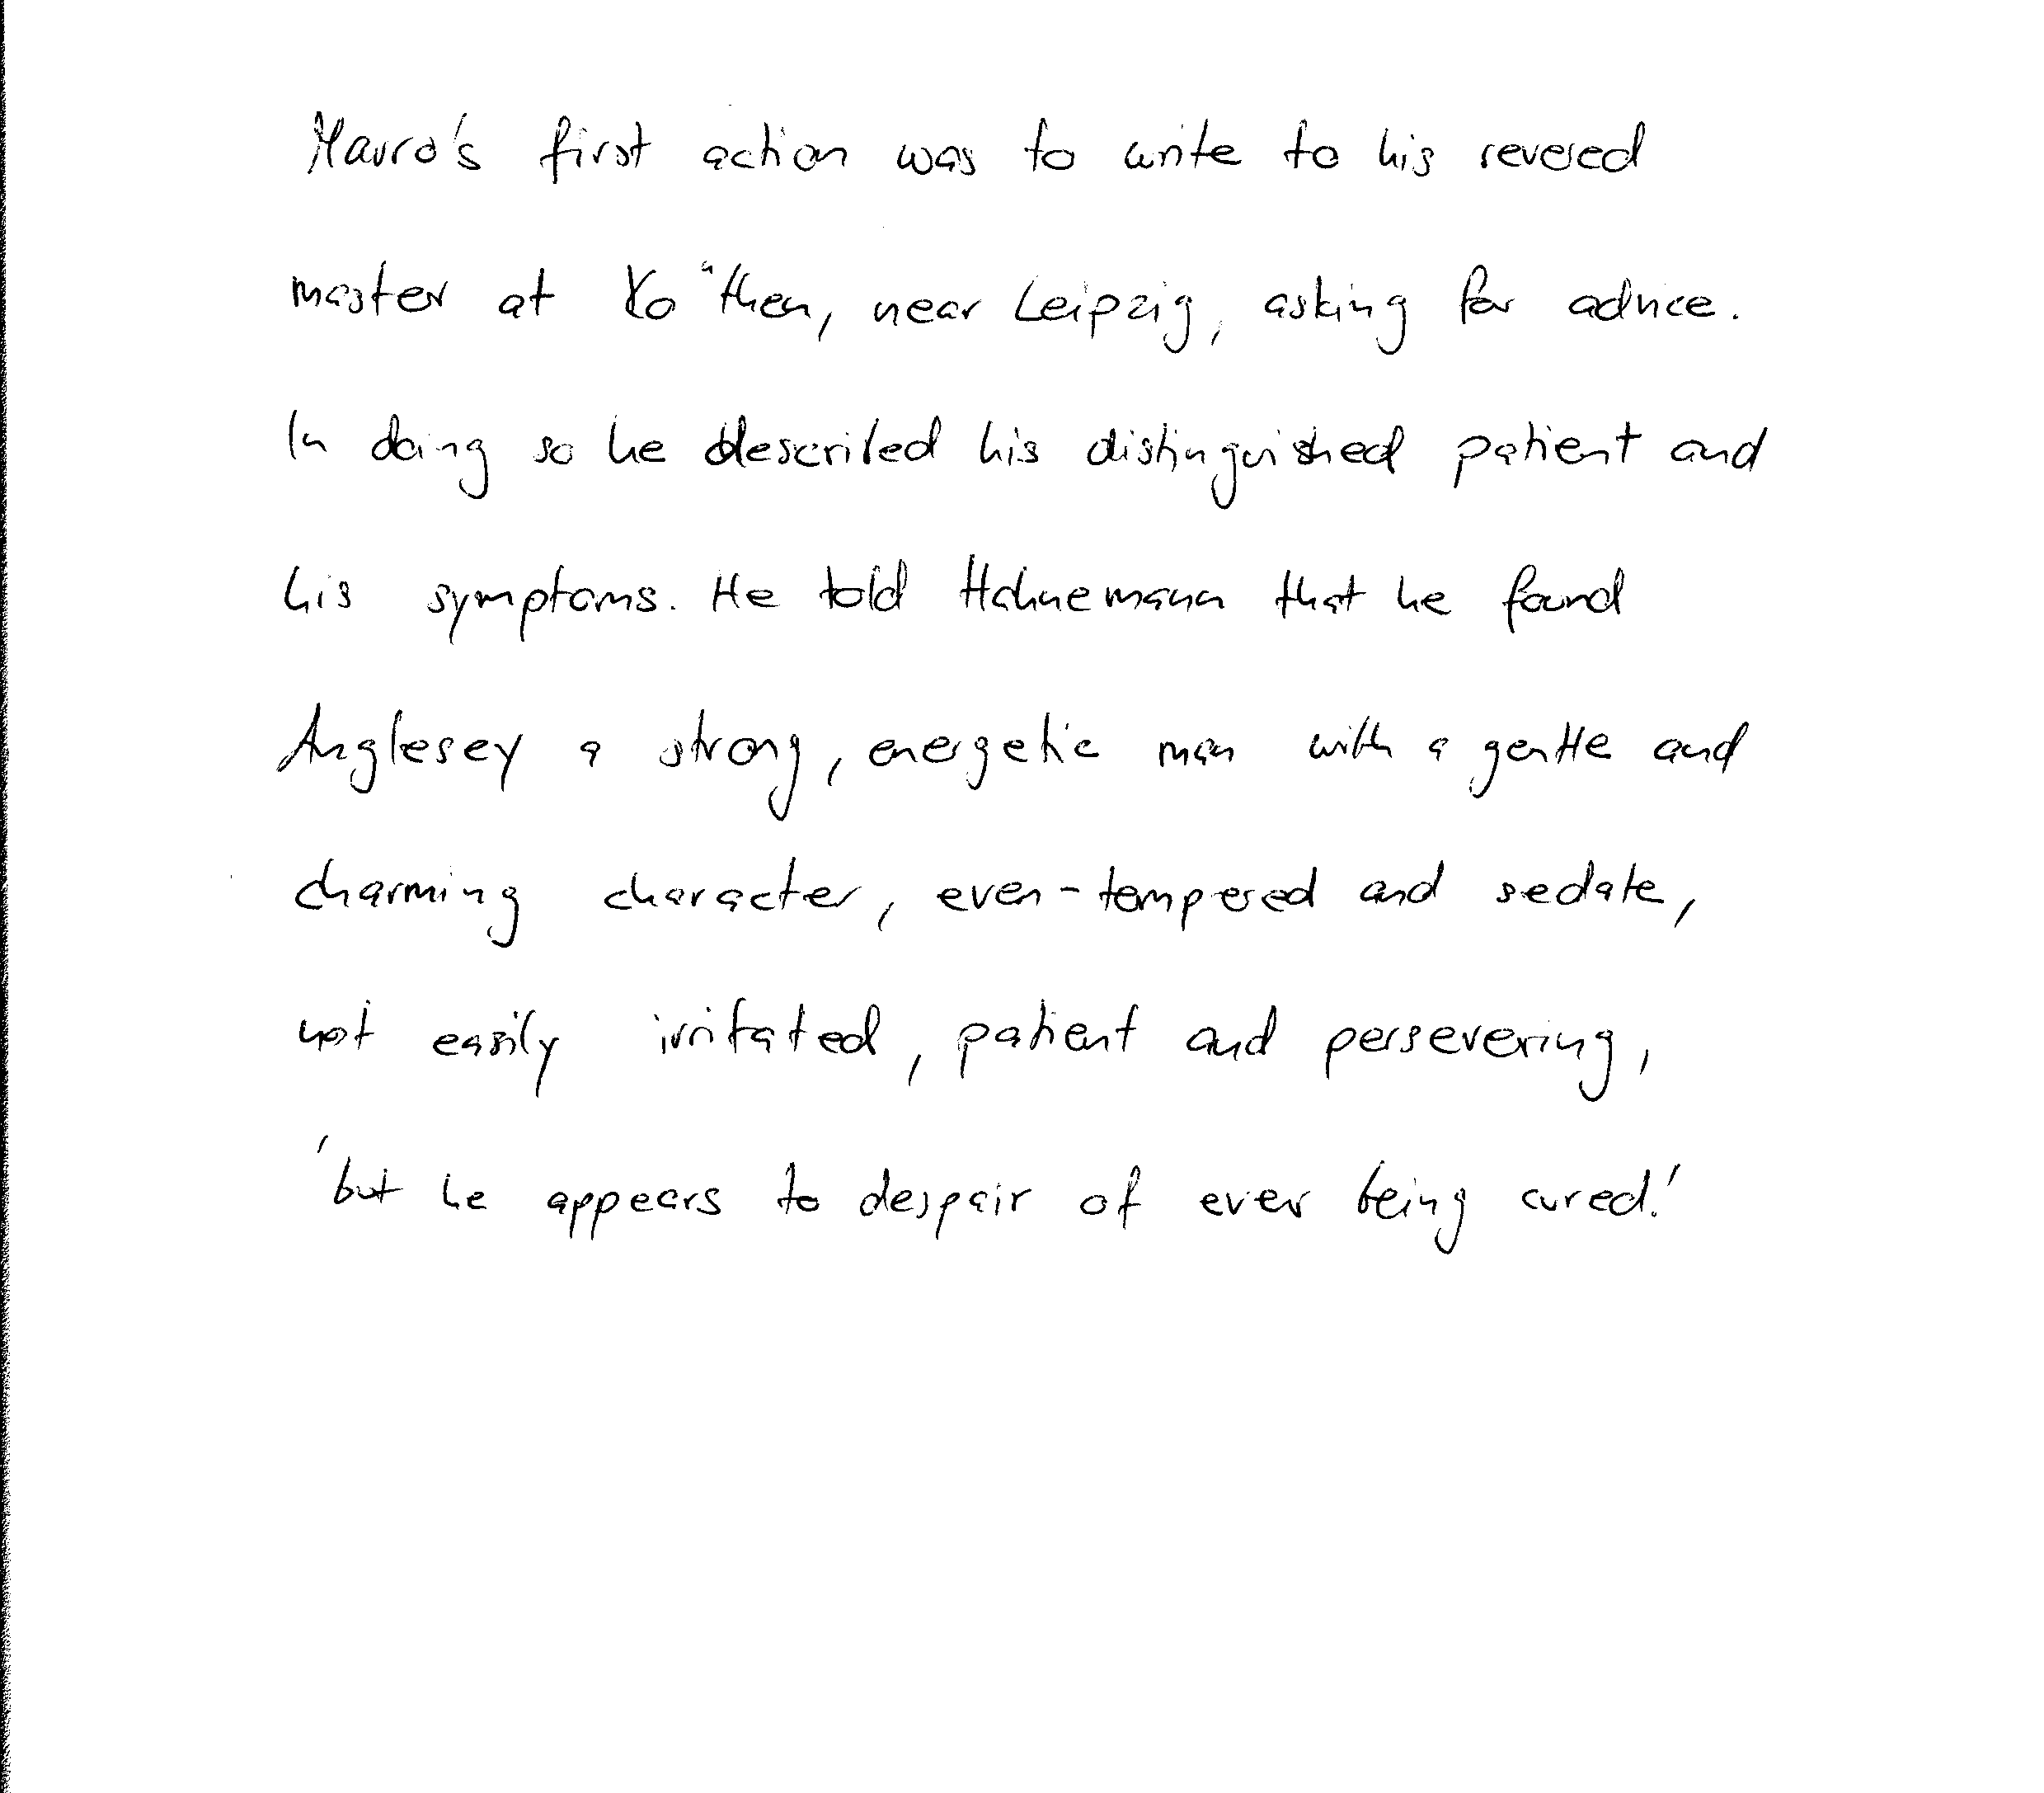 Mauro's first action was to write to his revered
master at Ko"then, near Leipzig, asking for advice.
In doing so he described his distinguished patient and
his symptoms. He told Hahnemann that he found
Anglesey a strong, energetic man with a gentle and
charming character, even-tempered and sedate,
not easily irritated, patient and persevering,
'but he appears to despair of ever being cured.'